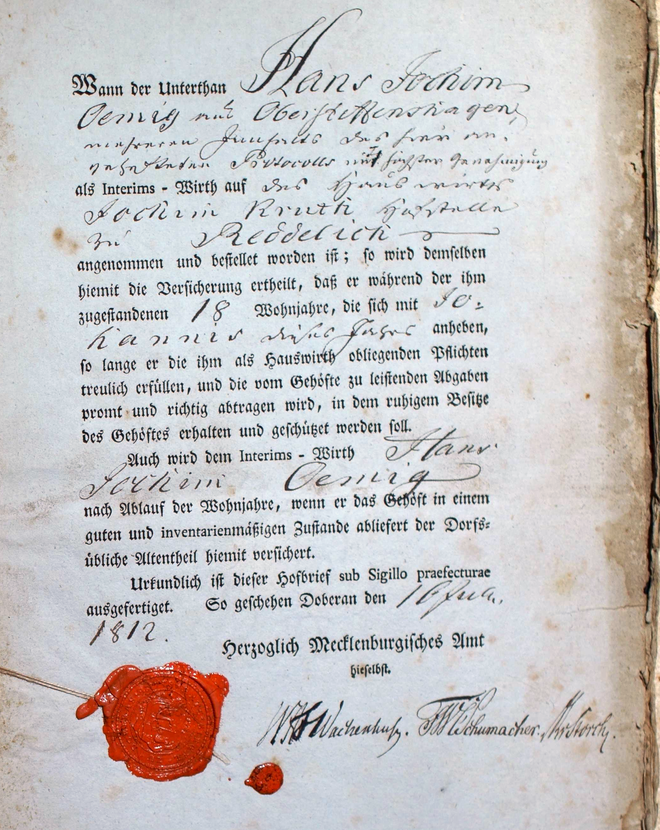 Wann der Unterthan Hans Jochim
Oemig aus Obersteffenshagen,
mehreren Innhalts des hier an-
gehefteten Protocolls mit höchster Genehmigung
als Interims - Wirth auf des Hauswirths
Jochim Kruth Hofstelle
zu Reddelich
angenommen und bestellet worden ist; so wird demselben
hiemit die Versicherung ertheilt, daß er während der ihm
zugestandenen 18 Wohnjahre, die sich mit Jo-
hannis dieses Jahres anheben,
so lange er die ihm als Hauswirth obliegenden Pflichten
treulich erfüllen, und die vom Gehöfte zu leistenden Abgaben
promt und richtig abtragen wird, in dem ruhigem Besitze
des Gehöftes erhalten und geschützet werden soll.
Auch wird dem Interims - Wirth Hans
Jochim Oemig
nach Ablauf der Wohnjahre, wenn er das Gehöft in einem
guten und inventarienmäßigen Zustande abliefert der Dorfs-
übliche Altentheil hiemit versichert.
Urkundlich ist dieser Hofbrief sub Sigillo praefecturae
ausgefertiget. So geschehen Doberan den 16
1812.
Herzoglich Mecklenburgisches Amt
hieselbst.
Wachenhusen. Schumacher. Storch.